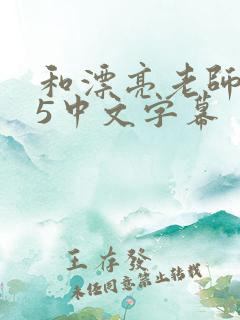 和漂亮老師
5中文字幕
王存發
未经同意禁止转载